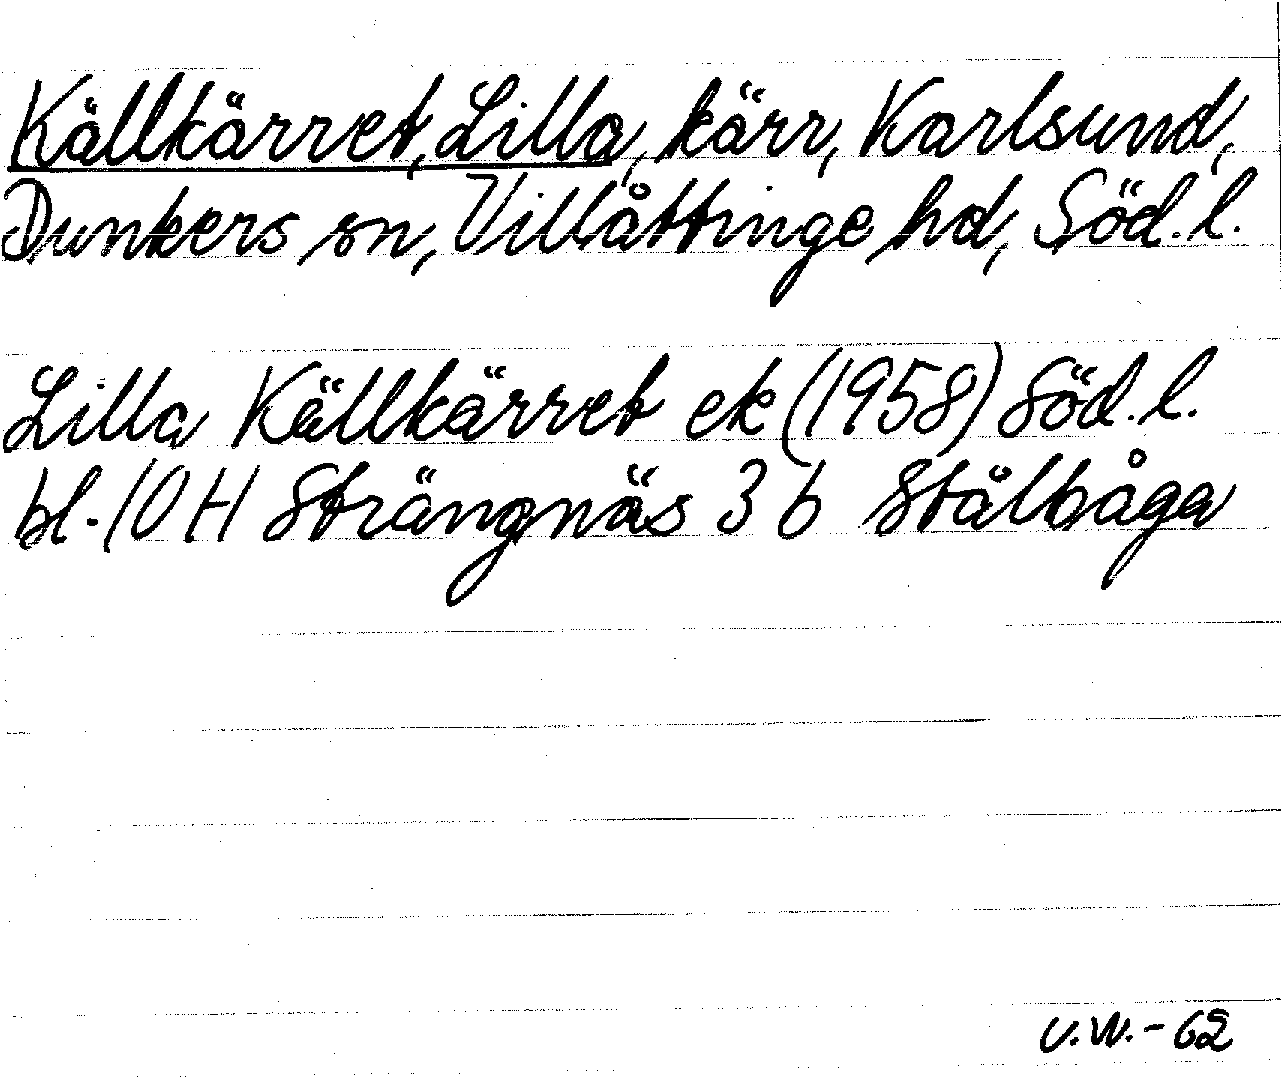 Källkärret, Lilla, kärr, Karlsund,
Dunkers sn, Villåttinge hd, Söd. l.
Lilla Källkärret ek (1958) Söd. l.
bl. 10 H Strängnäs 3 b Stålbåga
U.W.-62